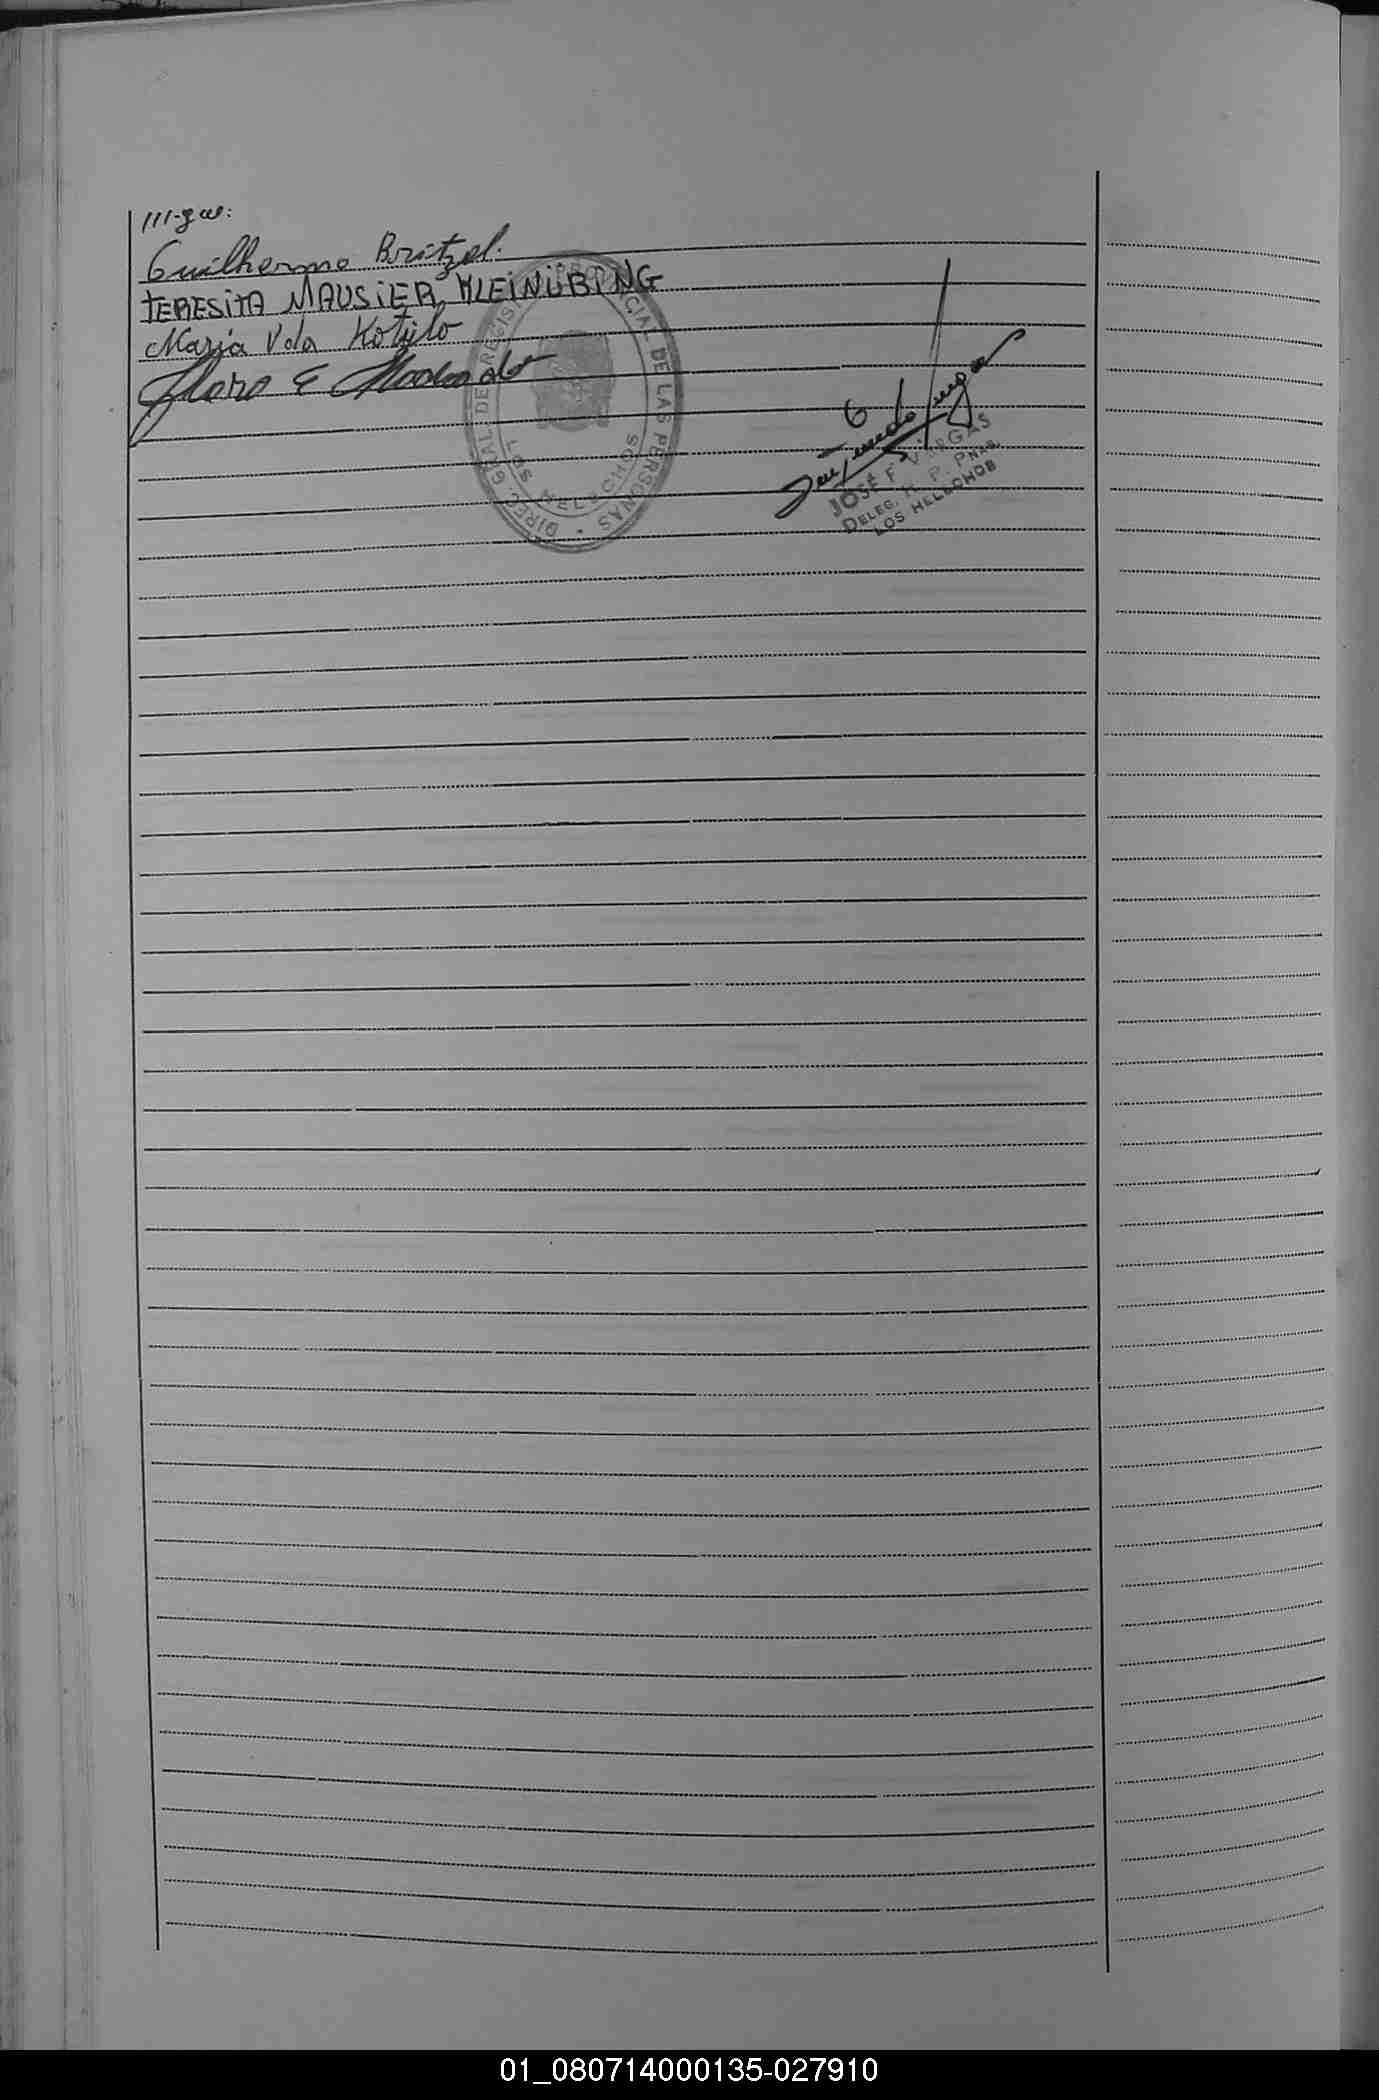 Guilhermo Britzel.
TERESITA MAUSIER KLEINÜBING
Maria Vda Kotilo
Floro E
DIREC. GRAL. DE REGISTRO PROVINCIAL DE LAS PERSONAS
LOS HELECHOS
JOSÉ F. VARGAS
DELEG. R. P. PNAS.
LOS HELECHOS
01_080714000135-027910